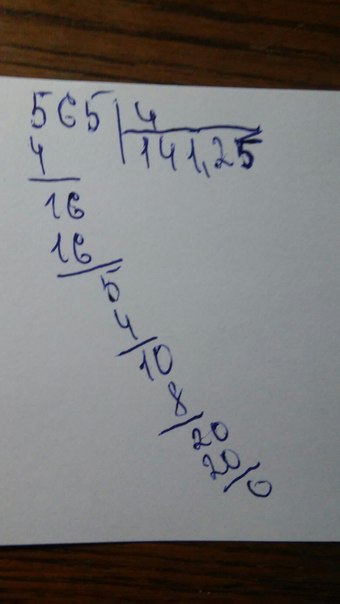 565 4
4 141,25
16
16
5
4
10
8
20
20
0